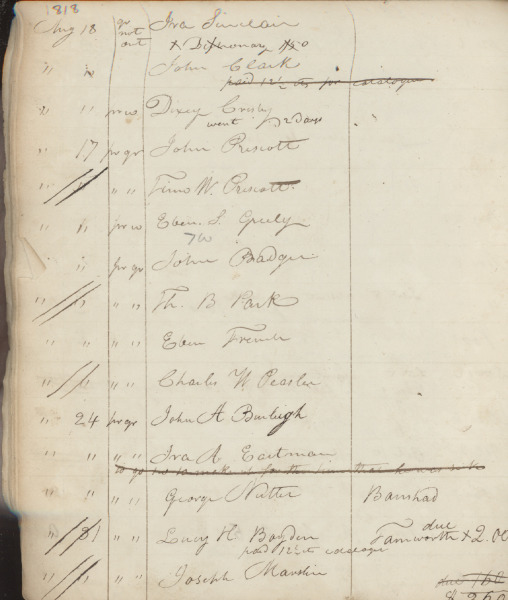 1818
Aug 18 go not out Ira Sinclair
x Dictionary
" " John Clark
paid 12½ cts for catalogue
" " pr w Dixey Crosby
went 2 days
" 17 pr gr John Prescott
" " " " W. Prescott
" " pr w Eben. S. Greely
" " pr gr John Badger
" " " " Th. B Park
" " " " Eben French
" " " " Charles W. Peaslee
" 24 pr gr John A Burleigh
" " " " Ira A Eastman
" " " " George Nutter Barnstead
" 31 " " Lucy H. Boyden Tamworth due x 2.00
paid 12½ cts catalogue
" " " " Joseph Manston
due 160
$ 260